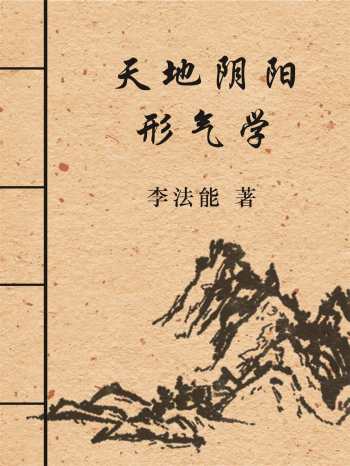 天地阴阳
形气学
李法能 著